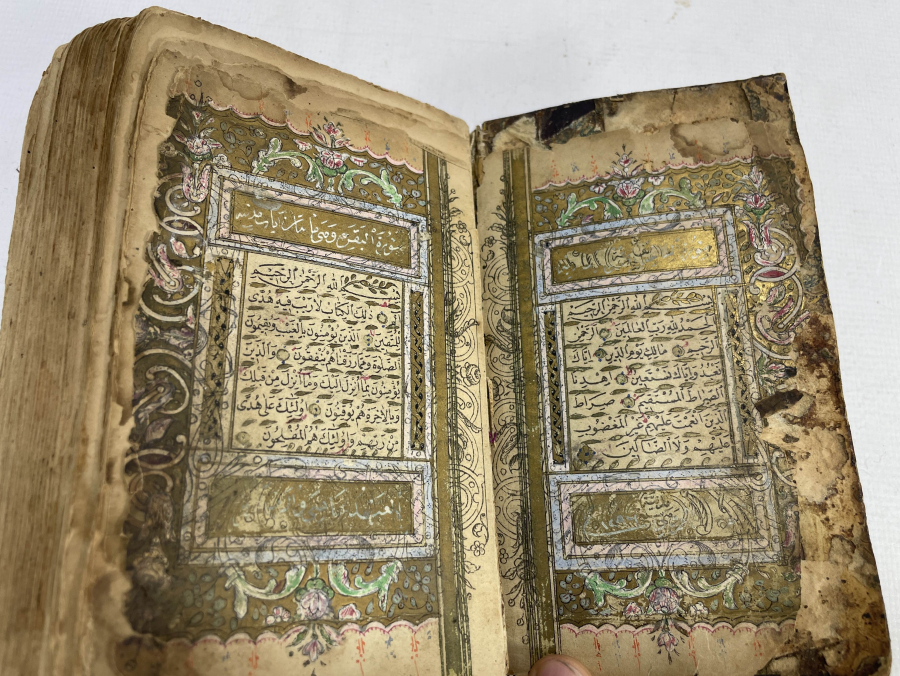 بسم الله الرحمن الرحيم
الحمد لله رب العالمين الرحمن
الرحيم مالك يوم الدين اياك
نعبد واياك نستعين اهدنا
الصراط المستقيم صراط
الذين انعمت عليهم غير المغضوب
عليهم ولا الضالين
سورة البقرة وهي
بسم الله الرحمن الرحيم
الم ذلك الكتاب لا ريب فيه هدى
للمتقين الذين يؤمنون بالغيب ويقيمون
الصلوة ومما رزقناهم ينفقون والذين
يؤمنون بما انزل اليك وما انزل من قبلك
وبالاخرة هم يوقنون اولئك على هدى
من ربهم واولئك هم المفلحون